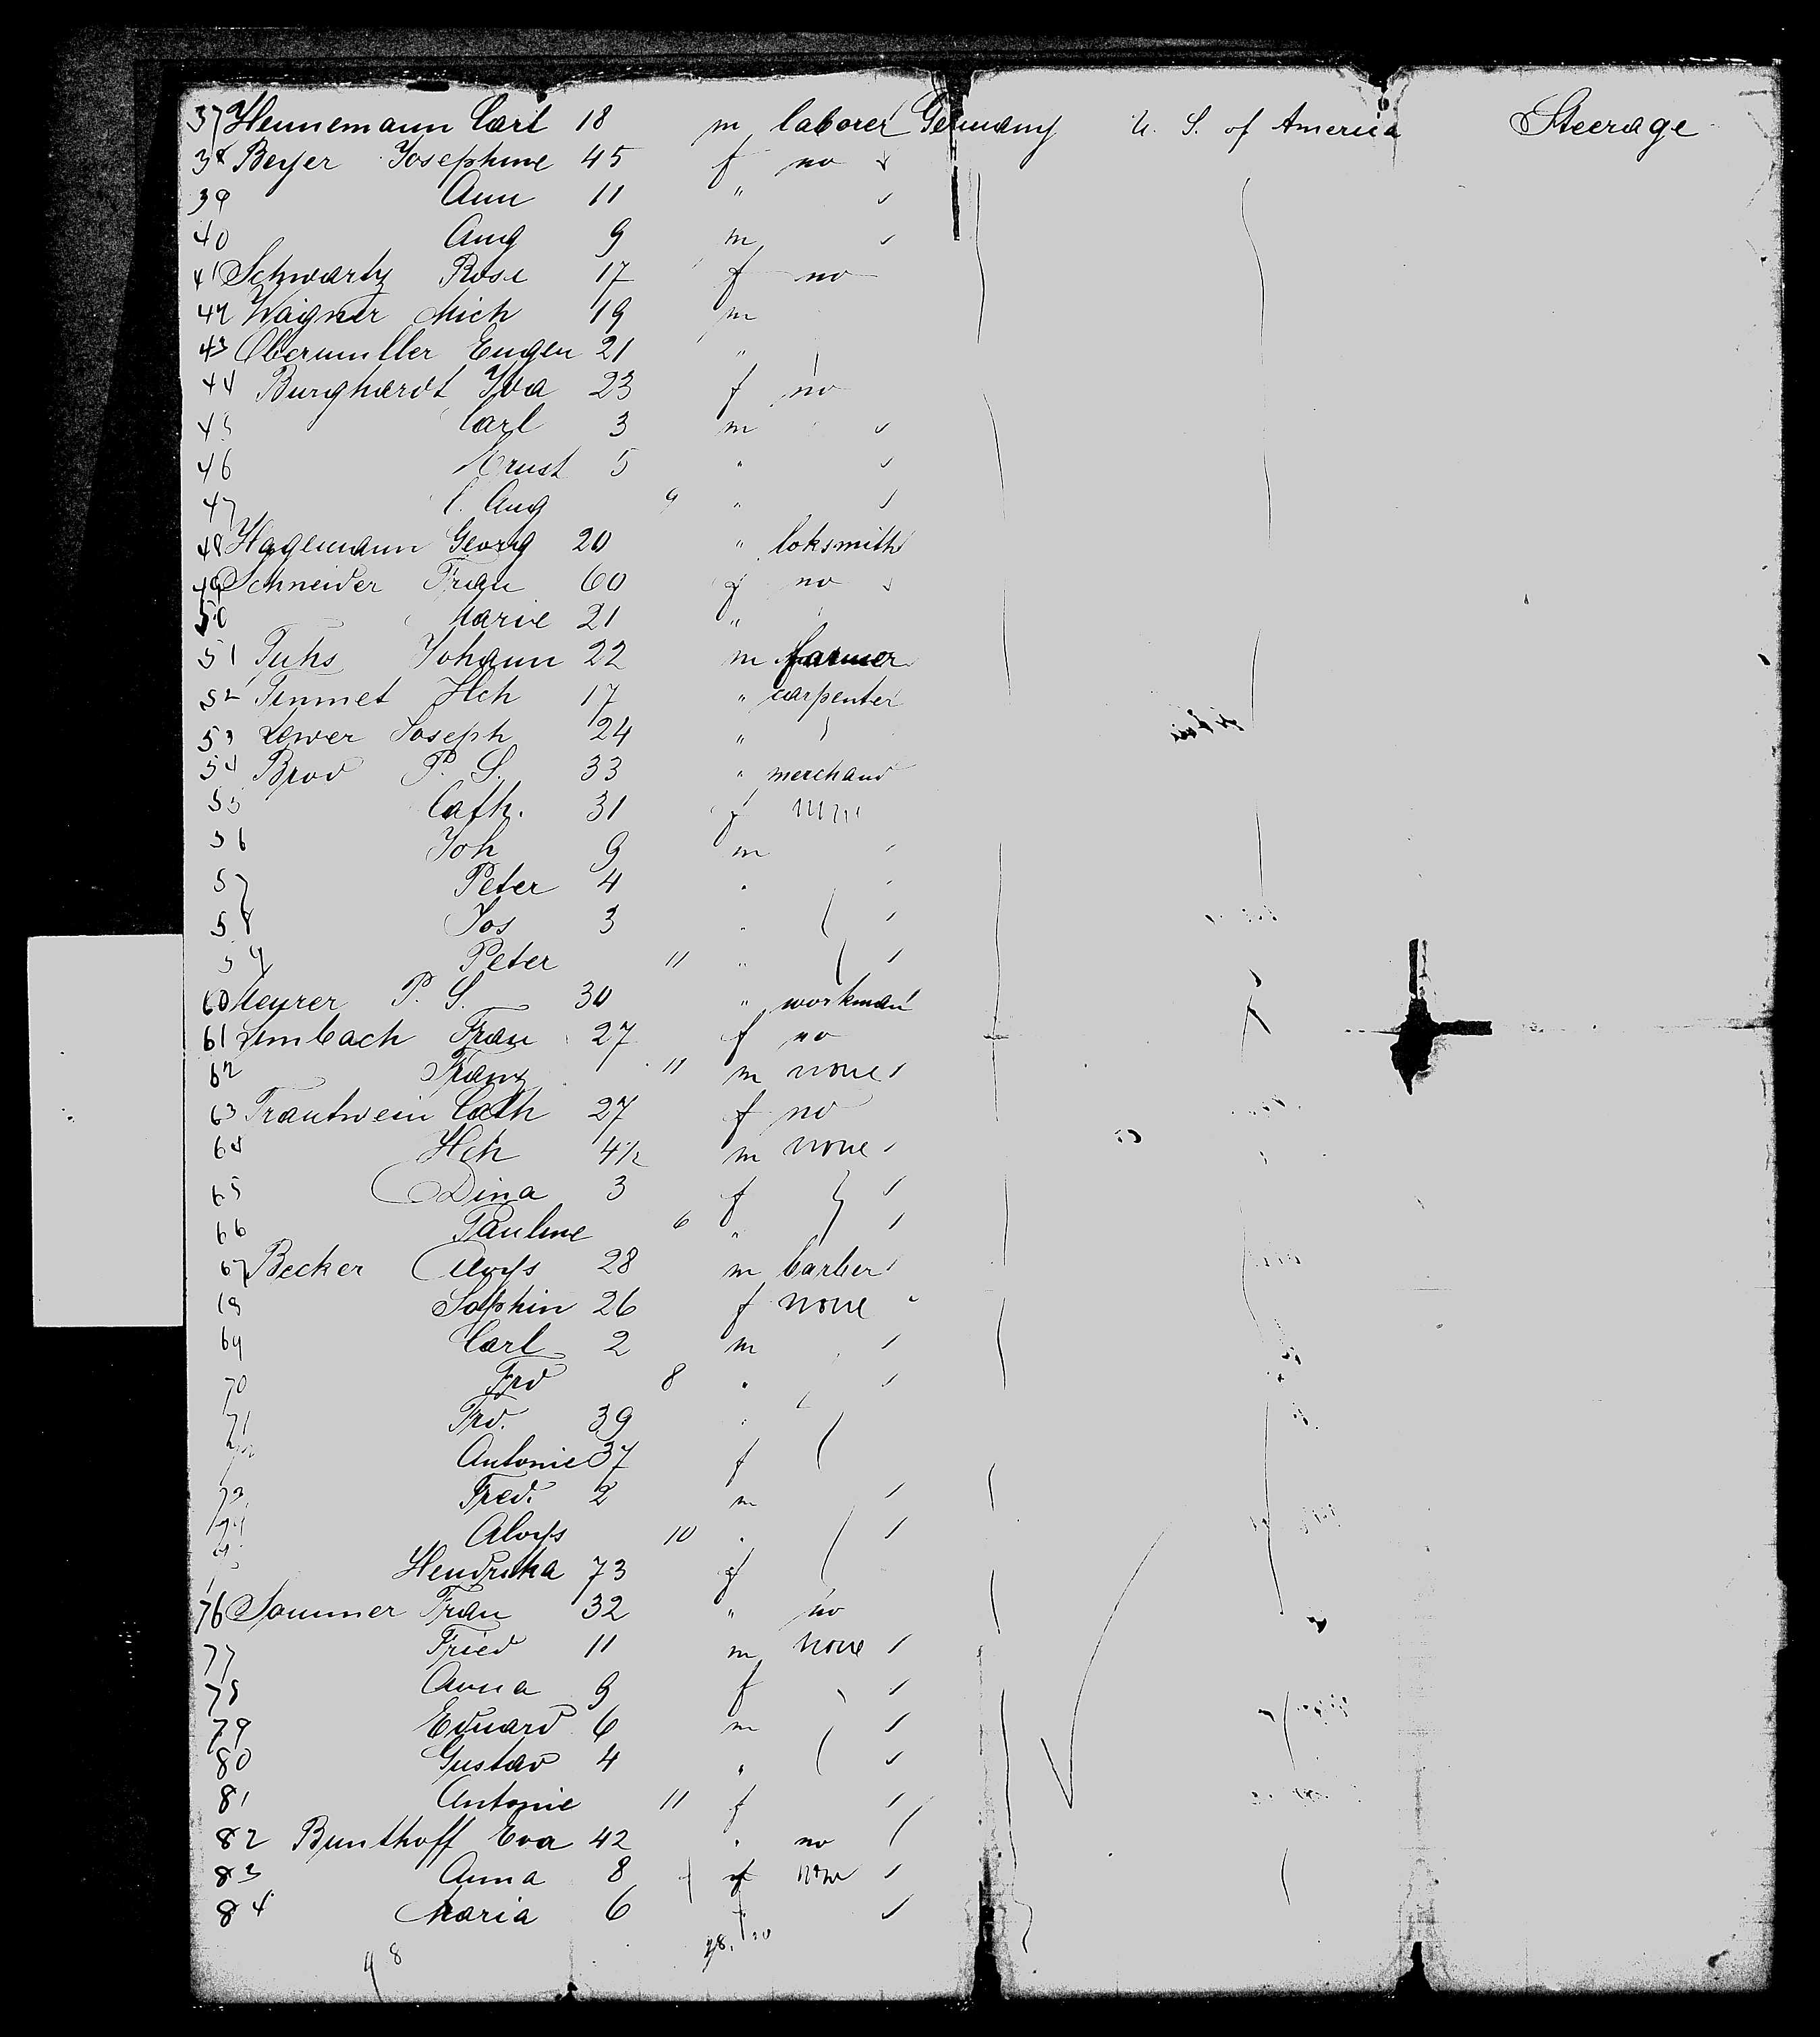 37 Hennemann Carl 18 m laborer Germany U. S. of America Steerage
38 Beyer Josephine 45 f no
39 Ann 11 "
40 Aug 9 m
41 Schwartz Rosa 17 f no
42 Wagner Mich 19 m
43 Obermuller Eugen 21 "
44 Burghardt Ida 23 f no
45 Carl 3 m
46 Ernst 5 "
47 C. Aug 9 "
48 Hagemann Georg 20 " loksmith
49 Schneider Frau 60 f no
50 Marie 21 "
51 Fuhs Johann 22 m farmer
52 Temmet Hch 17 " carpenter
53 Lewer Joseph 24 "
54 Brod P. S. 33 " merchand
55 Cath. 31 f
56 Joh 9 m
57 Peter 4 "
58 Jos 3 "
59 Peter 11 "
60 Meurer P. S. 30 " workman
61 Limbach Frau 27 f no
62 Franz 11 m none
63 Trautwein Cath 27 f no
64 Hch 4 1/2 m none
65 Dina 3 f
66 Pauline 6 "
67 Becker Aloys 28 m barber
68 Sophin 26 f none
69 Carl 2 m
70 Frd 8 "
71 Frd. 39 "
72 Antonie 37 f
73 Fred. 2 m
74 Aloys 10 "
Hendrika 73 f
76 Sommer Frau 32 " no
77 Fried 11 m none
78 Anna 9 f
79 Eduard 6 m
80 Gustav 4 "
81 Antonie 11 f
82 Bunthoff Eva 42 " no
83 Anna 8 f none
84 Maria 6 "
48